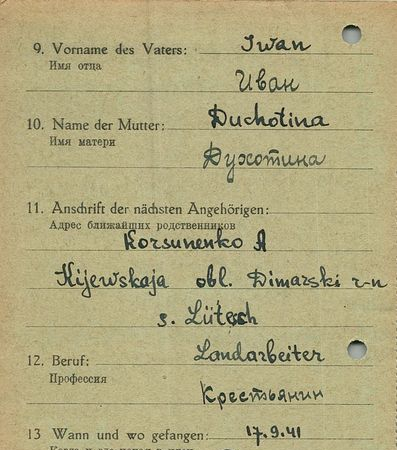 9. Vorname des Vaters: Iwan
Имя отца
Иван
10. Name der Mutter: Duchotina
Имя матери
Духотина
11. Anschrift der nächsten Angehörigen:
Адрес ближайших родственников
Korsunenko A
Kijewskaja obl. Dimarski r-n
s. Lütesch
12. Beruf: Landarbeiter
Профессия
Крестьянин
13 Wann und wo gefangen: 17.9.41